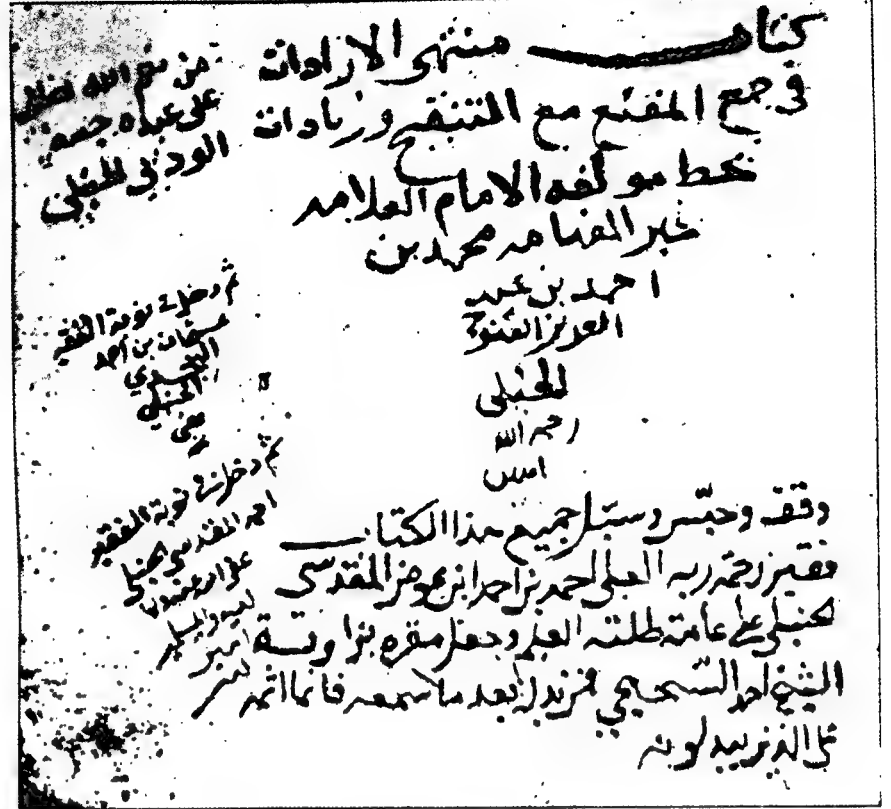 كتاب منتهى الارادات
في جمع المقنع مع التنقيح وزيادات
بخط مولفه الامام العلامه
محمد بن
احمد بن عبد
العزيز الفتوحي
الحنبلي
رحمه الله
امين
وقف وحبس وسبل جميع هذا الكتاب
فقير رحمة ربه العلي احمد بن احمد ابن عوض المقدسي
الحنبلي على عامة طلبة العلم وجعل مقره بزاوية
الشيخ احمد فمن بدله بعد ما سمعه فانما اثمه
على الذين يبدلونه
من نعم الله تعالى
على عبده
الحنبلي
ثم دخل في نوبة الفقير
عثمان بن احمد
النجدي
الحنبلي
ثم دخل في نوبة الفقير
احمد المقدسي الحنبلي